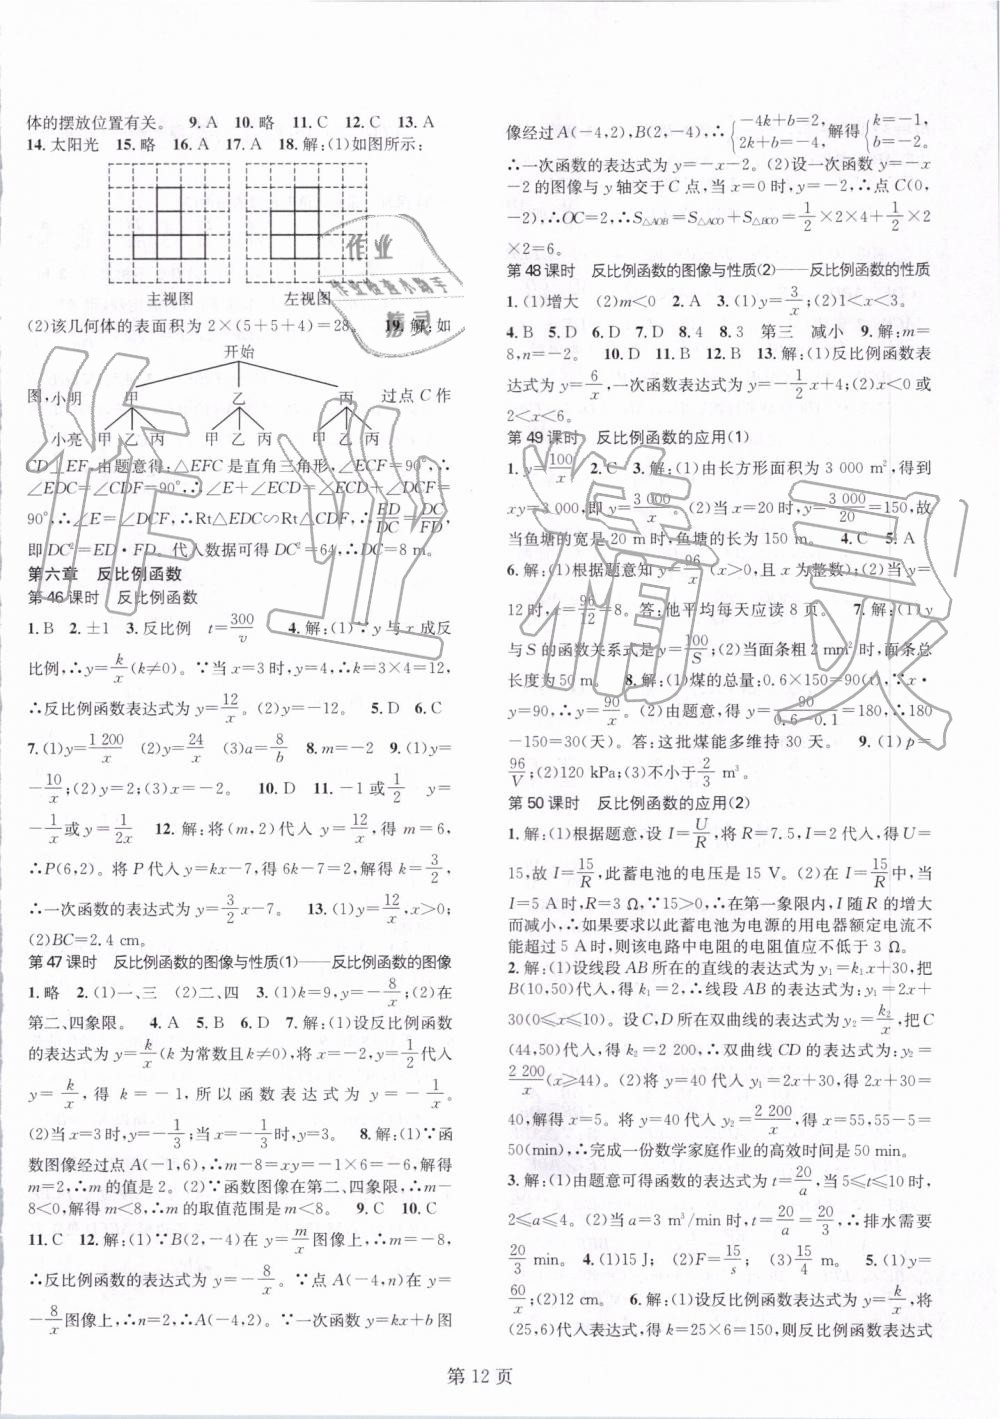 体的摆放位置有关。 9. A 10. 略 11. C 12. C 13. A
14. 太阳光 15. 略 16. A 17. A 18. 解:(1)如图所示:
主视图 左视图
(2)该几何体的表面积为 2×(5+5+4)=28。 19. 解:如
开始
图:小明 甲 乙 丙 过点 C 作
小亮 甲 乙 丙 甲 乙 丙 甲 乙 丙
CD⊥EF,由题意得:△EFC是直角三角形,∠ECF=90°,∴
∠EDC=∠CDF=90°,∴∠E+∠ECD=∠ECD+∠DCF=
90°,∴∠E=∠DCF,∴Rt△EDC∽Rt△CDF,∴ED/DC=DC/FD,
即DC²=ED·FD。代入数据可得DC²=64,∴DC=8 m。
第六章 反比例函数
第 46 课时 反比例函数
1. B 2. ±1 3. 反比例 t=300/v 4. 解:(1)∵y与x成反
比例,∴y=k/x(k≠0)。∵当x=3时,y=4,∴k=3×4=12,
∴反比例函数表达式为y=12/x。(2)y=2。 5. D 6. C
7. (1)y=1 200/x (2)y=24/x (3)a=8/b 8. m=-2 9. (1)y=
-10/x;(2)y=2;(3)x=2。 10. D 11. -1或1/2 y=
-1/x或y=1/2x 12. 解:将(m,2)代入y=12/x,得m=6,
∴P(6,2)。将P代入y=kx-7,得6k-7=2,解得k=3/2,
∴一次函数的表达式为y=3/2x-7。 13. (1)y=12/x,x>0;
(2)BC=2.4 cm。
第 47 课时 反比例函数的图像与性质(1)——反比例函数的图像
1. 略 2. (1)一、三 (2)二、四 3. (1)k=9,y=-8/x;(2)在
第二、四象限。 4. A 5. B 6. D 7. 解:(1)设反比例函数
的表达式为y=k/x(k为常数且k≠0),当x=-2时,y=1/2代入
y=k/x,得k=-1,所以函数表达式为y=-1/x。
(2)当x=3时,y=-1/3;当x=-1/3时,y=3。 8. 解:(1)∵函
数图像经过点A(-1,6),∴m-8=xy=-1×6=-6,解得
m=2,∴m的值是2。(2)∵函数图像在第二、四象限,∴m-
8<0,解得m<8,∴m的取值范围是m<8。 9. C 10. C
11. C 12. 解:(1)∵B(2,-4)在y=m/x图像上,∴m=-8,
∴反比例函数的表达式为y=-8/x。∵点A(-4,n)在y=
-8/x图像上,∴n=2,∴A(-4,2)。∵一次函数y=kx+b图
像经过A(-4,2),B(2,-4),∴{-4k+b=2, 2k+b=-4, 解得{k=-1, b=-2。
∴一次函数的表达式为y=-x-2。(2)设一次函数y=-x
-2的图像与y轴交于C点,当x=0时,y=-2,∴点C(0,
-2),∴OC=2,∴S△AOB=S△ACO+S△BCO=1/2×2×4+1/2×2
×2=6。
第 48 课时 反比例函数的图像与性质(2)——反比例函数的性质
1. (1)增大 (2)m<0 2. A 3. (1)y=3/x;(2)1<x<3。
4. B 5. D 6. D 7. D 8. 3 第三 减小 9. 解:m=
8,n=-2。 10. D 11. B 12. B 13. 解:(1)反比例函数表
达式为y=6/x,一次函数表达式为y=-1/2x+4;(2)x<0或
2<x<6。
第 49 课时 反比例函数的应用(1)
1. y=100/x 2. C 3. 解:(1)由长方形面积为3 000 m²,得到
xy=3 000,即y=3 000/x。(2)当x=20时,y=3 000/20=150,故
当鱼塘的宽是20 m时,鱼塘的长为150 m。 4. C 5. A
6. 解:(1)根据题意知y=96/x(x>0,且x为整数);(2)当y=
12时,x=96/12=8。答:他平均每天应读8页。 7. 解:(1)y
与S的函数关系式是y=100/S;(2)当面条粗2 mm²时,面条总
长度为50 m。 8. 解:(1)煤的总量:0.6×150=90(t),∵x·
y=90,∴y=90/x。(2)由题意,得y=90/0.6-0.1=180,∴180
-150=30(天)。答:这批煤能多维持30天。 9. (1)p=
96/V;(2)120 kPa;(3)不小于2/3 m³。
第 50 课时 反比例函数的应用(2)
1. 解:(1)根据题意,设I=U/R,将R=7.5,I=2代入,得U=
15,故I=15/R,此蓄电池的电压是15 V。(2)在I=15/R中,当
I=5 A时,R=3 Ω,∵15>0,∴在第一象限内,I随R的增大
而减小,∴如果要求以此蓄电池为电源的用电器额定电流不
能超过5 A时,则该电路中电阻的电阻值应不低于3 Ω。
2. 解:(1)设线段AB所在的直线的表达式为y₁=k₁x+30,把
B(10,50)代入,得k₁=2,∴线段AB的表达式为:y₁=2x+
30(0≤x≤10)。设C,D所在双曲线的表达式为y₂=k₂/x,把C
(44,50)代入,得k₂=2 200,∴双曲线CD的表达式为:y₂=
2 200/x(x≥44)。(2)将y=40代入y₁=2x+30,得2x+30=
40,解得x=5。将y=40代入y₂=2 200/x,得x=55,55-5=
50(min),∴完成一份数学家庭作业的高效时间是50 min。
3. 解:(1)由题意可得函数的表达式为t=20/a,当5≤t≤10时,
2≤a≤4。(2)当a=3 m³/min时,t=20/a=20/3,∴排水需要
20/3 min。 4. (1)15 J; (2)F=15/s; (3)15/4 m。 5. (1)y=
60/x;(2)12 cm。 6. 解:(1)设反比例函数的表达式为y=k/x,将
(25,6)代入表达式,得k=25×6=150,则反比例函数表达式
第 12 页
作业
作业检查小助手
精灵
作业精灵